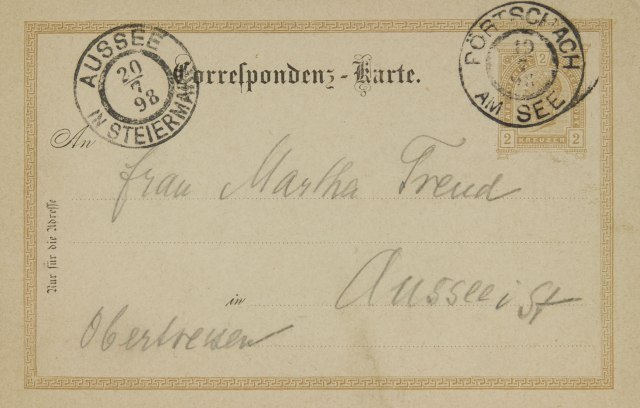 Correspondenz-Karte.
AUSSEE
20
7
98
IN STEIERMARK
PÖRTSCHACH
AM SEE
2
2 KREUZER 2
An
Frau Martha
Nur für die Adresse
in
Aussee i St